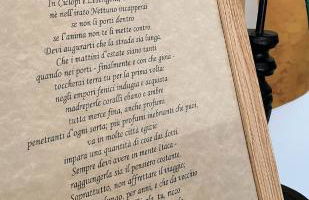 In Ciclopi e Lestrigoni,
né nell'irato Nettuno incapperai
se non li porti dentro
se l'anima non te li mette contro.
Devi augurarti che la strada sia lunga.
Che i mattini d'estate siano tanti
quando nei porti - finalmente e con che gioia -
toccherai terra tu per la prima volta:
negli empori fenici indugia e acquista
madreperle coralli ebano e ambre
tutta merce fina, anche profumi
penetranti d'ogni sorta; più profumi inebrianti che puoi,
va in molte città egizie
impara una quantità di cose dai dotti.
Sempre devi avere in mente Itaca -
raggiungerla sia il pensiero costante.
Soprattutto, non affrettare il viaggio;
lungo, per anni, e che da vecchio
ricco